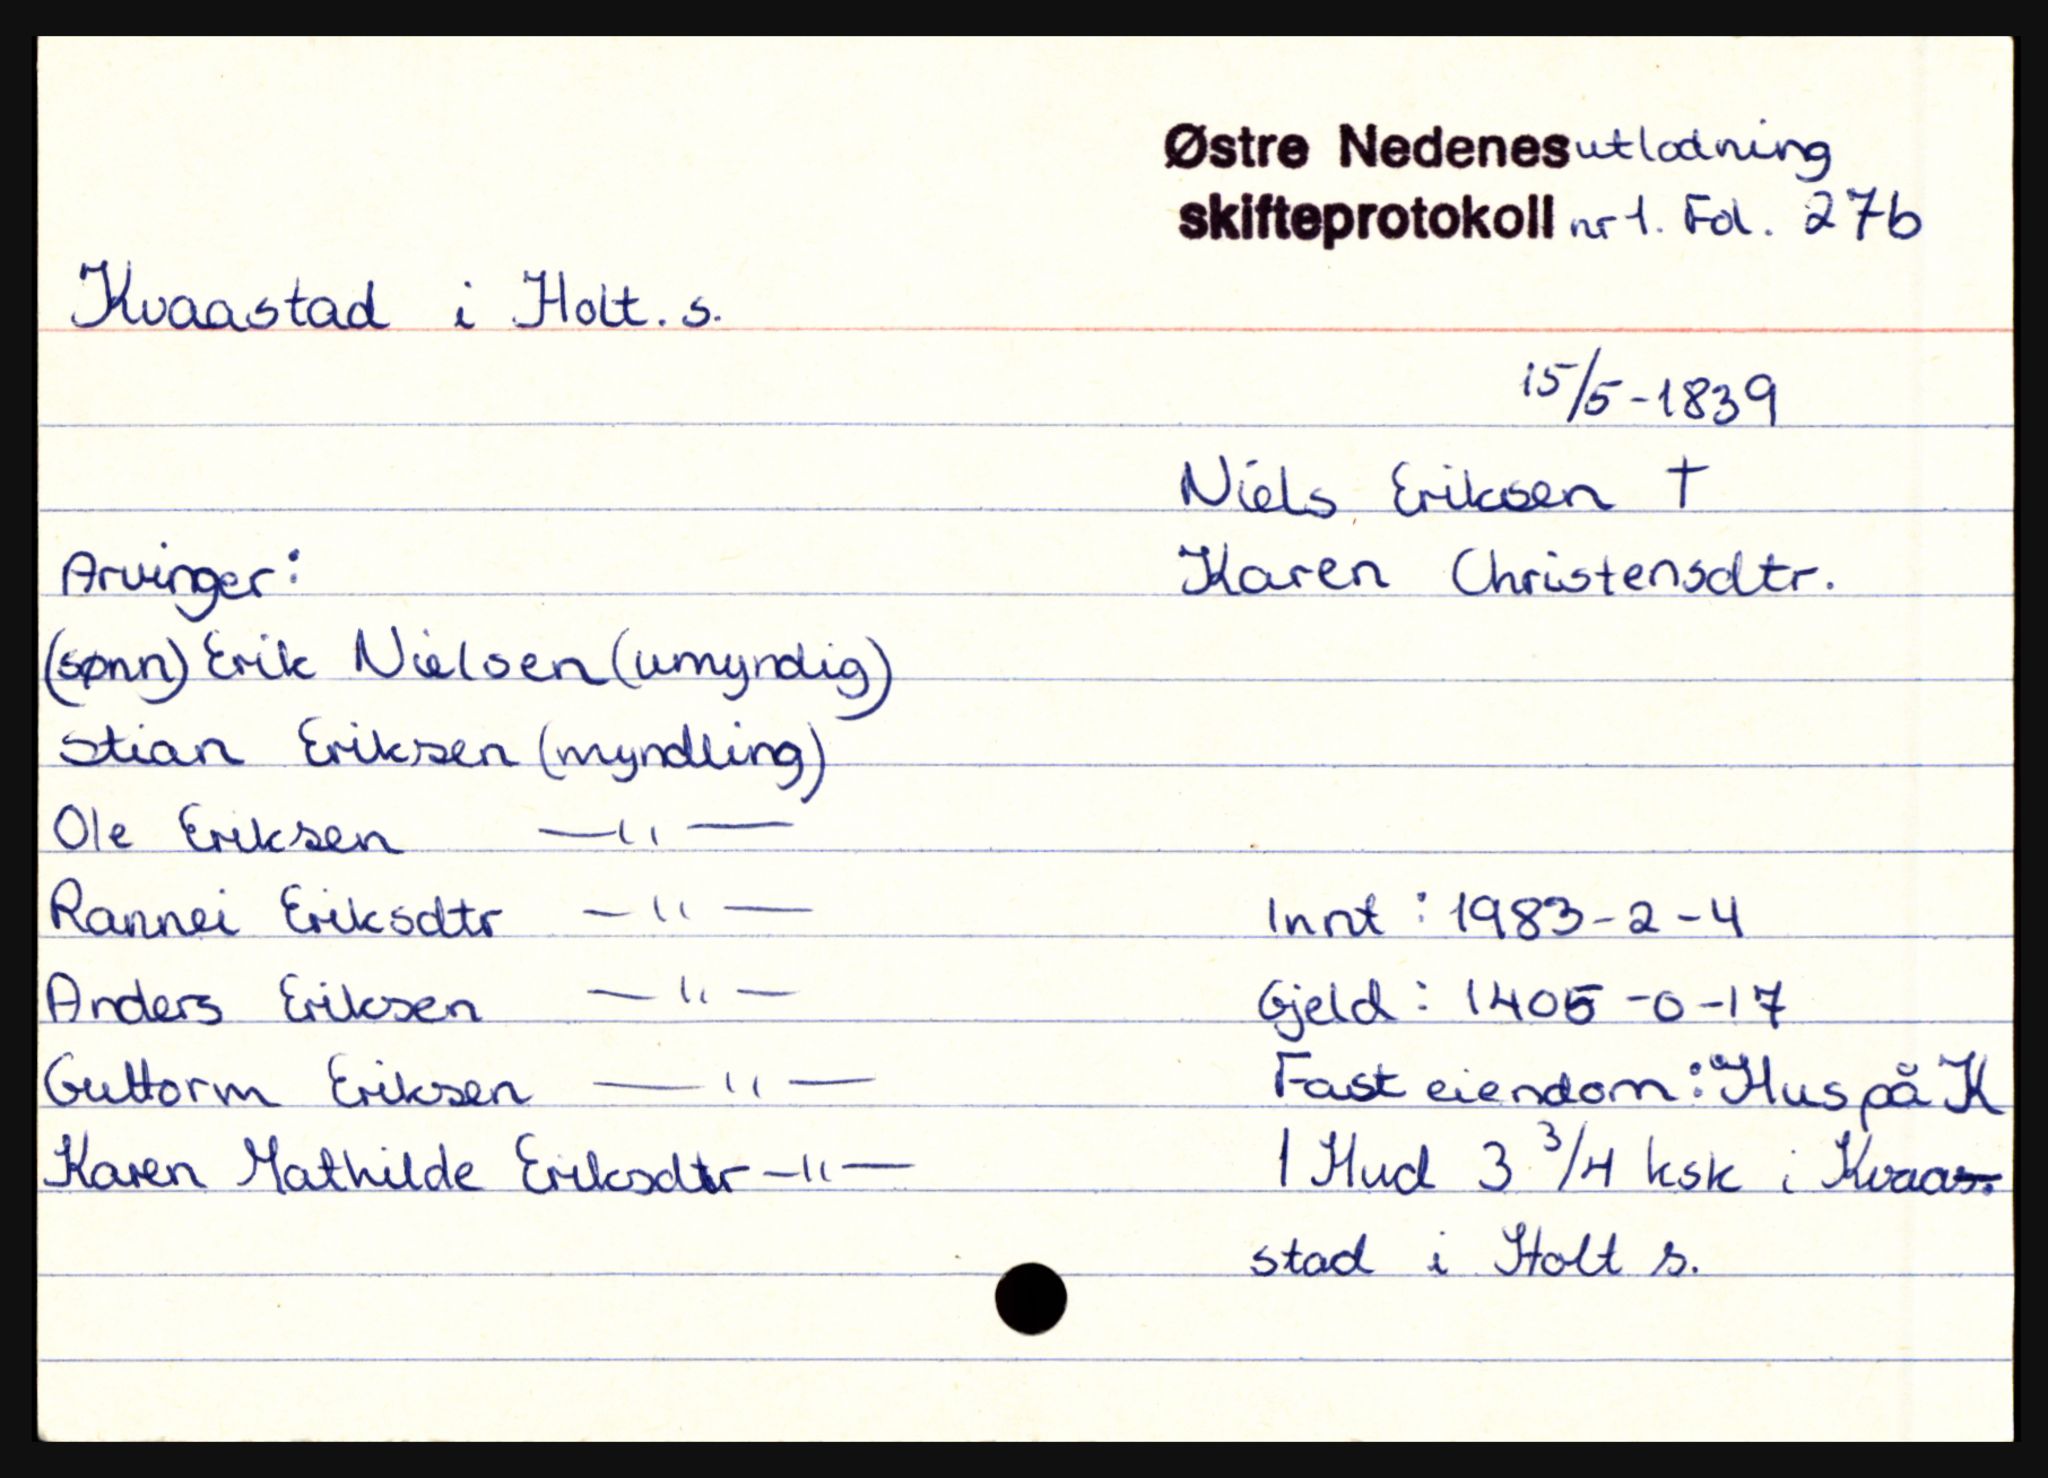 Østre Nedenes utlodning
skifteprotokoll nr 1. Fol. 27b
Kvaastad i Holt. s.
15/5-1839
Niels Eriksen †
Arvinger:
Karen Christensdtr.
(sønn) Erik Nielsen (umyndig)
Stian Eriksen (myndling)
Ole Eriksen —"—
Rannei Eriksdtr —"—
Innt: 1983-2-4
Anders Eriksen —"—
Gjeld: 1405-0-17
Guttorm Eriksen —"—
Fast eiendom: Hus på K
Karen Mathilde Eriksdtr —"—
1 Hud 3 3/4 ksk i Kvaas-
stad i Holt s.